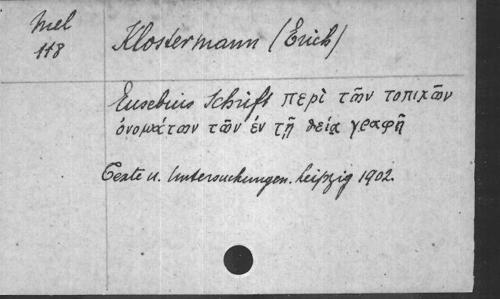 Mel
118
Klostermann (Erich)
Eusebius Schrift περὶ τῶν τοπικῶν
ὀνομάτων τῶν ἐν τῇ θείᾳ γραφῇ
Texte u. Untersuchungen. Leipzig 1902.